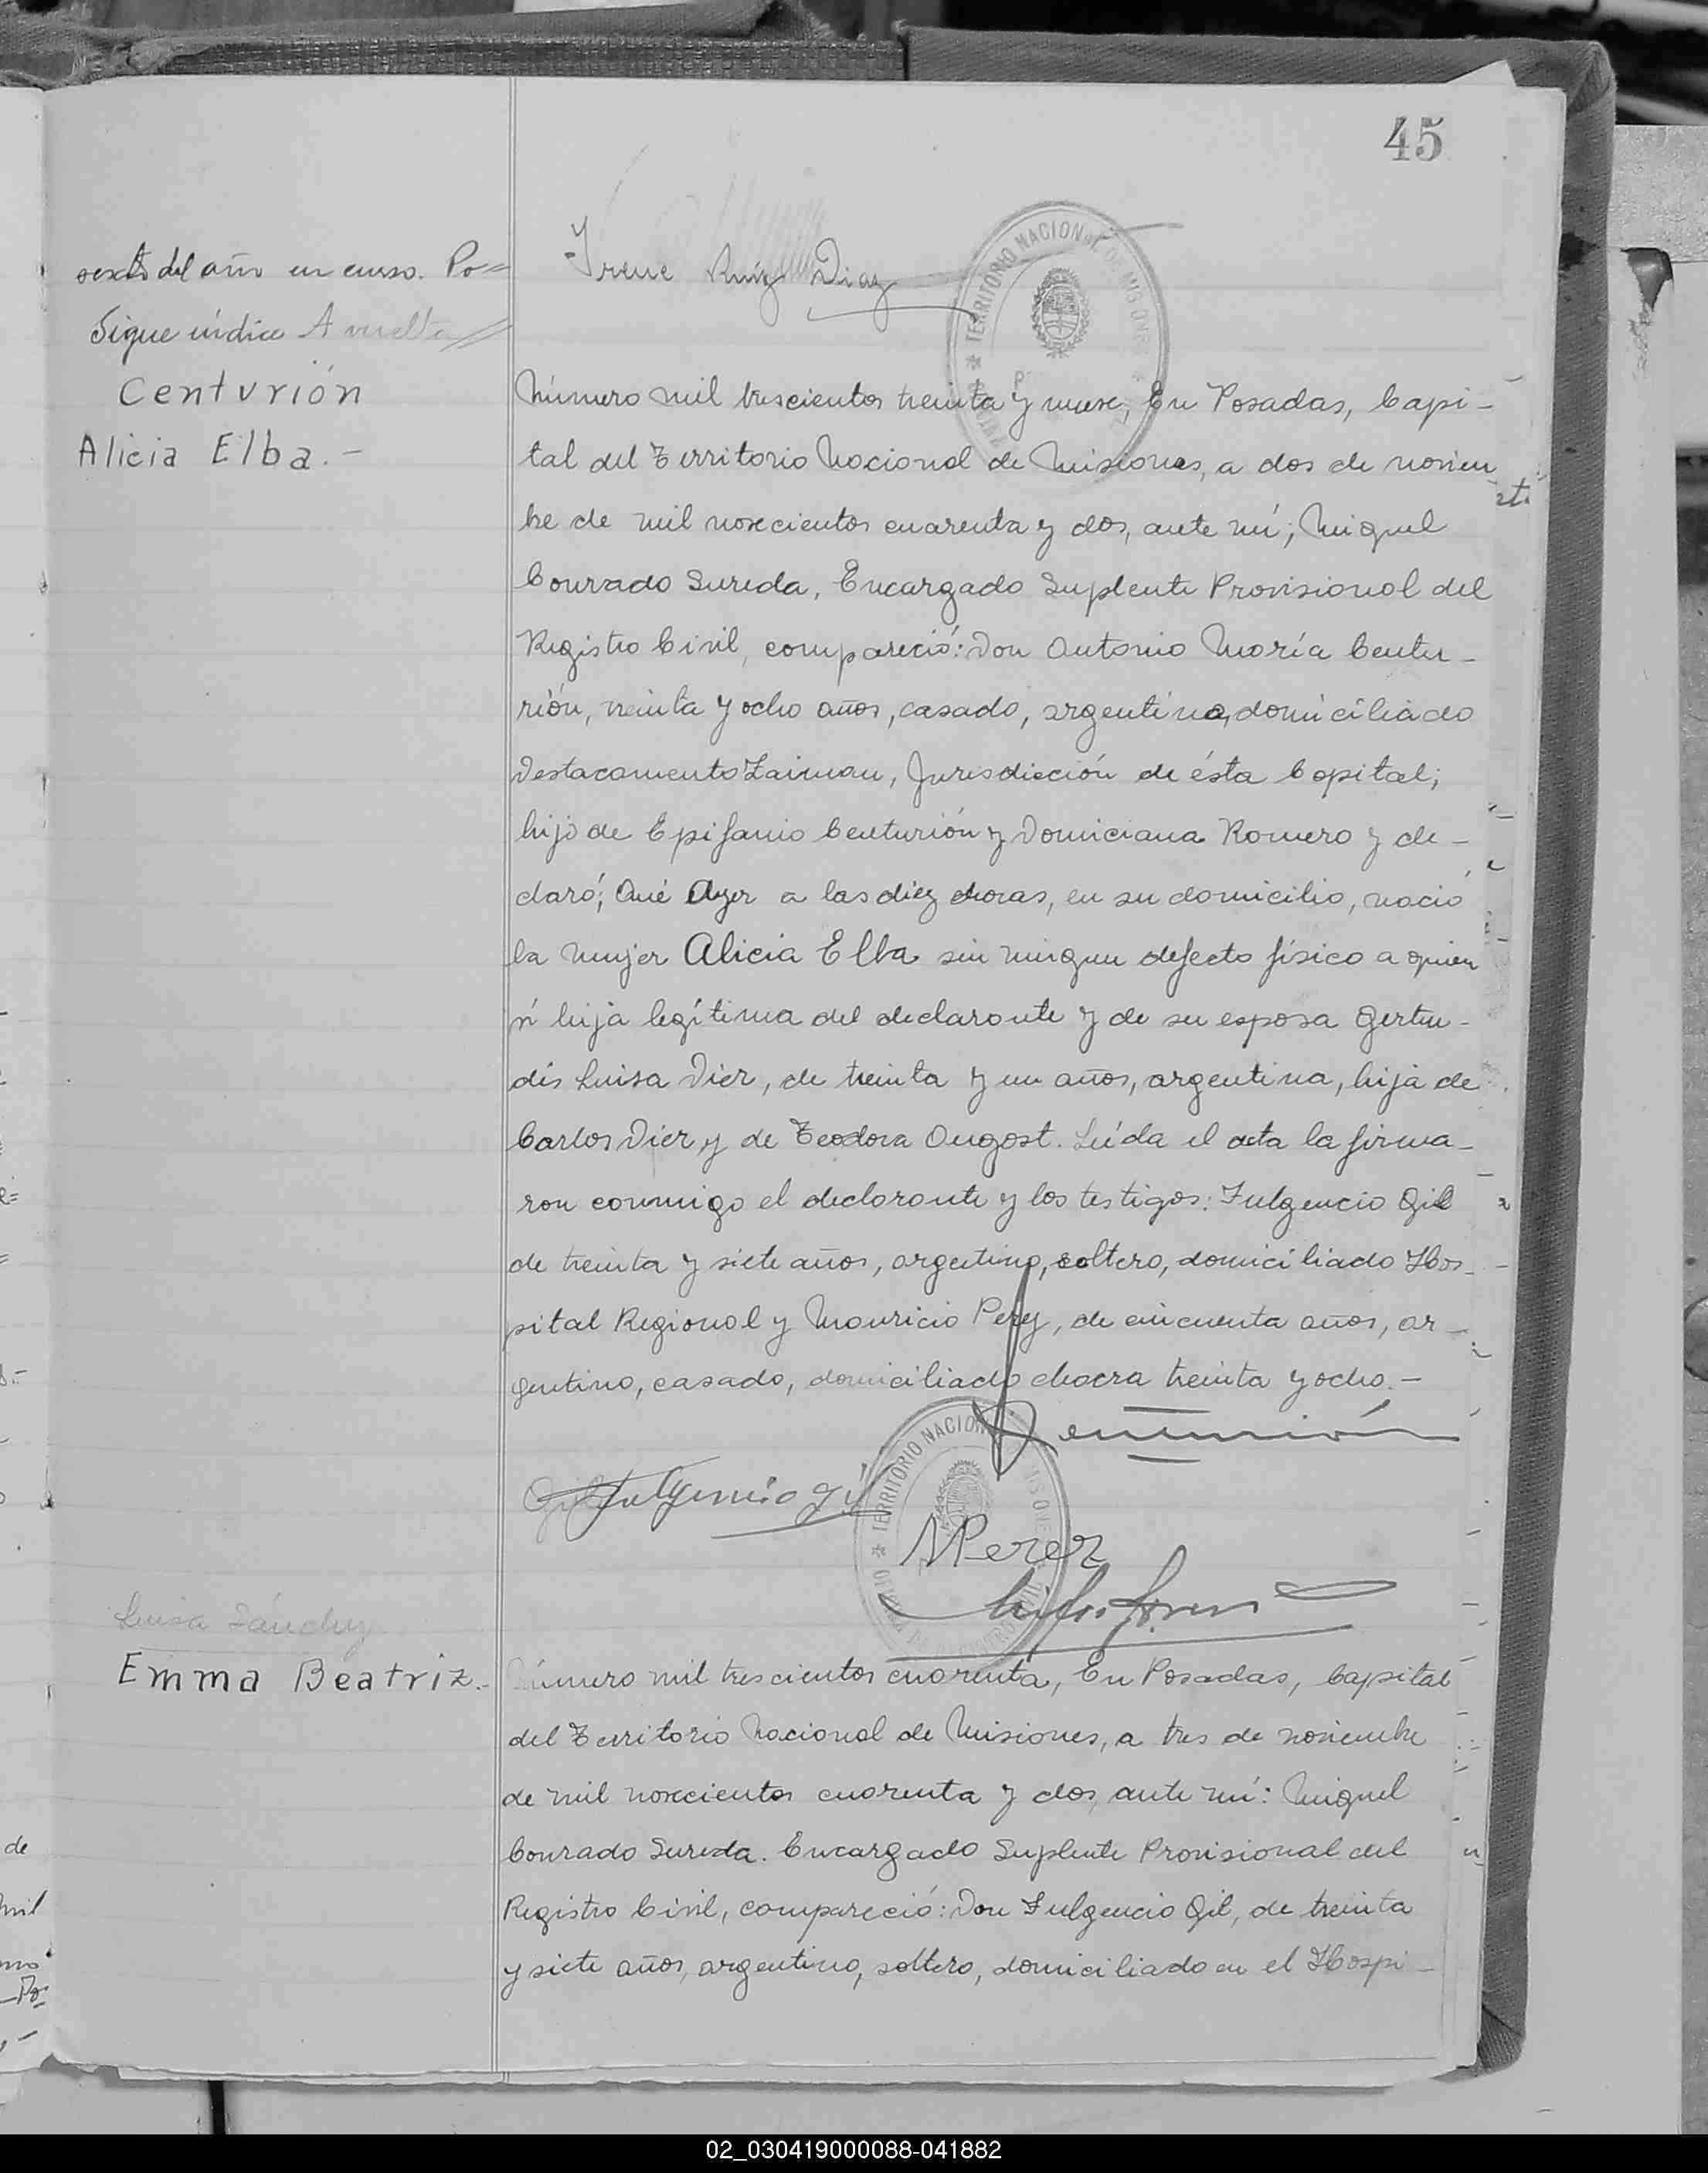 45
sexto del año en curso. Po=
Sigue índice A vuelta
Irene Ruíz Diaz
Centurión
Alicia Elba.-
Número mil trescientos treinta y nueve, En Posadas, Capi-
tal del Territorio Nacional de Misiones, a dos de noviem
bre de mil novecientos cuarenta y dos, ante mí; Miguel
Conrado Sureda, Encargado Suplente Provisional del
Registro Civil, compareció: Don Antonio María Centu-
rión, treinta y ocho años, casado, argentino, domiciliado
Destacamento Zaiman, Jurisdicción de ésta Capital;
hijo de Epifanio Centurión y Domiciana Romero y de-
claró; Qué Ayer a las diez horas, en su domicilio, nació
la mujer Alicia Elba sin ningun defecto físico a quien
ví hija legítima del declarante y de su esposa Gertru-
dis Luisa Dier, de treinta y un años, argentina, hija de
Carlos Dier y de Teodora Ougost. Leída el acta la firma-
ron conmigo el declarante y los testigos: Fulgencio Gil
de treinta y siete años, argentino, soltero, domiciliado Hos-
pital Regional y Mauricio Perez, de cincuenta años, ar-
gentino, casado, domiciliado chacra treinta y ocho.-
Centurión
Fulgencio Gil
TERRITORIO NACIONAL
MPerez
Luisa Sánchez
Emma Beatriz.-
Número mil trescientos cuarenta, En Posadas, Capital
del Territorio Nacional de Misiones, a tres de noviembre
de mil novecientos cuarenta y dos, ante mí: Miguel
Conrado Sureda. Encargado Suplente Provisional del
Registro Civil, compareció: Don Fulgencio Gil, de treinta
y siete años, argentino, soltero, domiciliado en el Hospi-
02_030419000088-041882